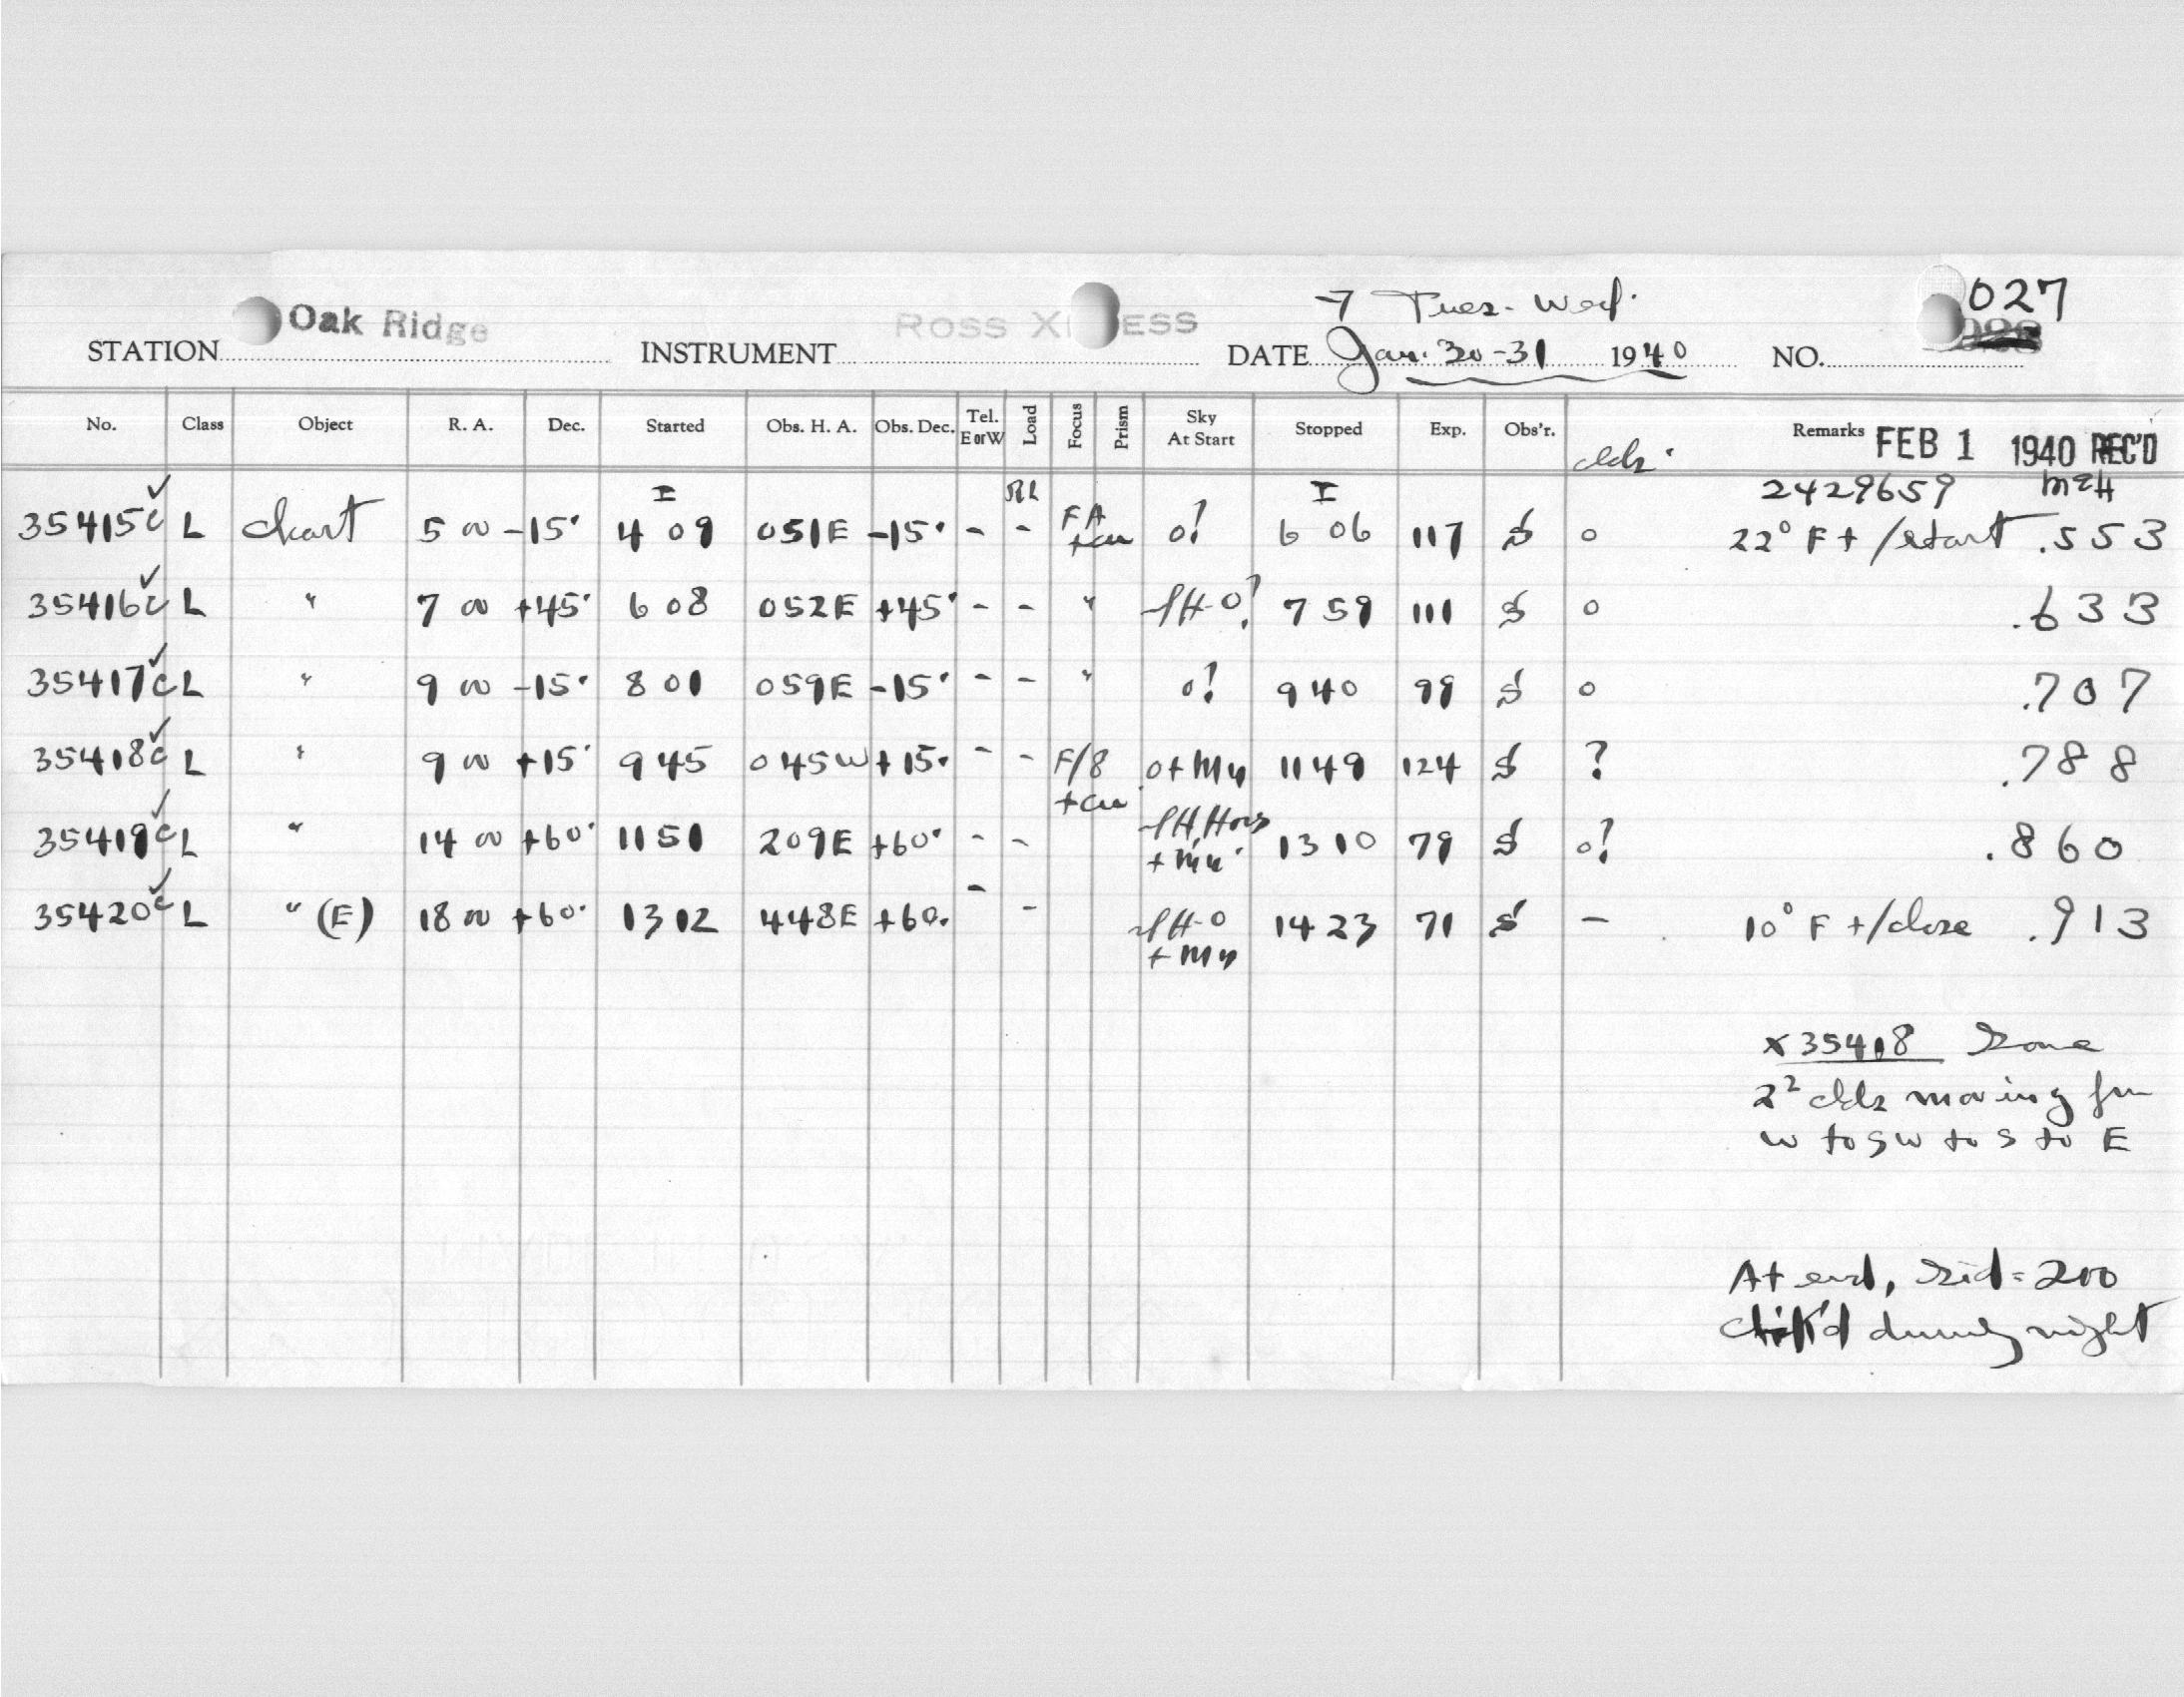 → Tues. - Wed. 027
STATION Oak Ridge INSTRUMENT ROSS X ESS DATE Jan. 30-31 1940 NO.
No. Class Object R. A. Dec. Started Obs. H. A. Obs. Dec. Tel. E or W Load Focus Prism Sky At Start Stopped Exp. Obs'r. clds. Remarks FEB 1 1940 REC'D
I I 2429659 MEH
35415c ✓ L chart 5 00 -15° 4 09 051E -15° - - FA 0! 6 06 117 S 0 22° F+ /start .553
35416c ✓ L " 7 00 +45° 6 08 052E +45° - - " 7 59 111 S 0 .633
35417c ✓ L " 9 00 -15° 8 01 059E -15° - - " 0! 9 40 99 S 0 .707
35418c ✓ L " 9 00 +15° 9 45 045W +15° - - F/8 0+Mn 11 49 124 S ? .788
35419c ✓ L " 14 00 +60° 11 51 209E +60° - - + Mn 13 10 79 S 0! .860
35420c ✓ L " (E) 18 00 +60° 13 12 448E +60° - - + Mn 14 23 71 S - 10° F +/close .913
x35418 Some
2² clds moving fm
W to SW to S to E
At end, sid = 200
ch'k'd during night